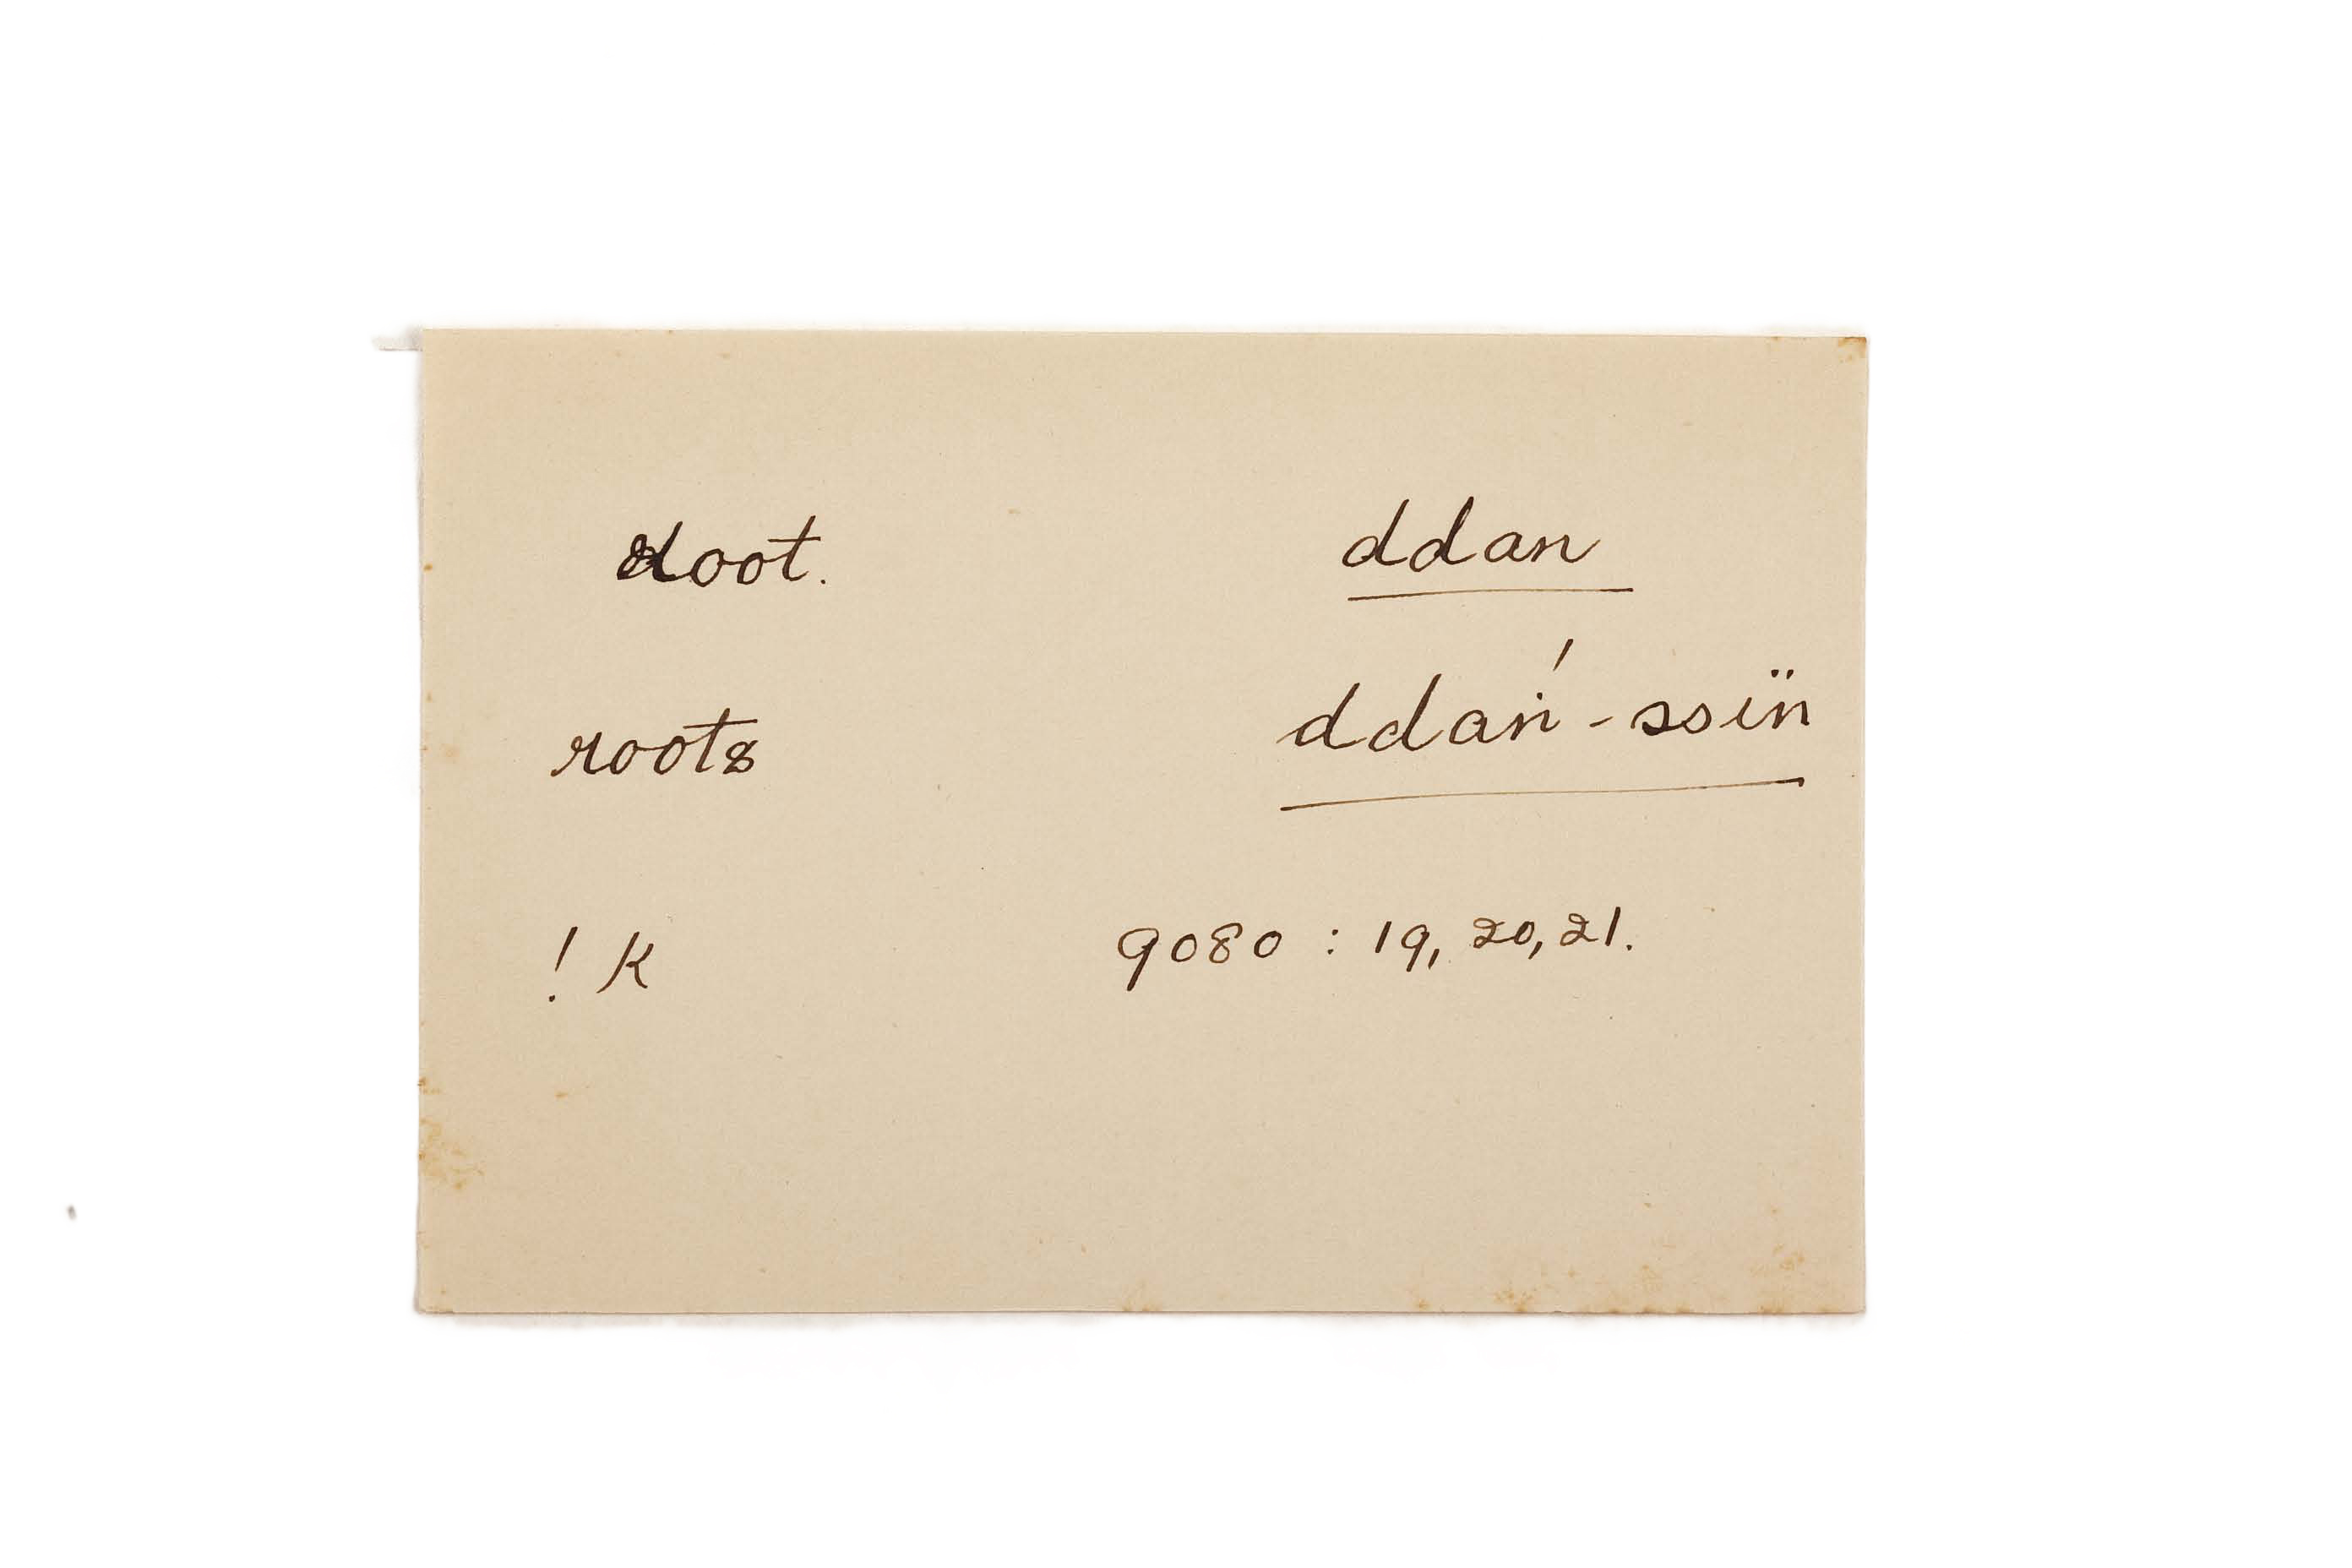 root. ddan
roots ddaṅ́-ssïn
! K 9080 : 19, 20, 21.